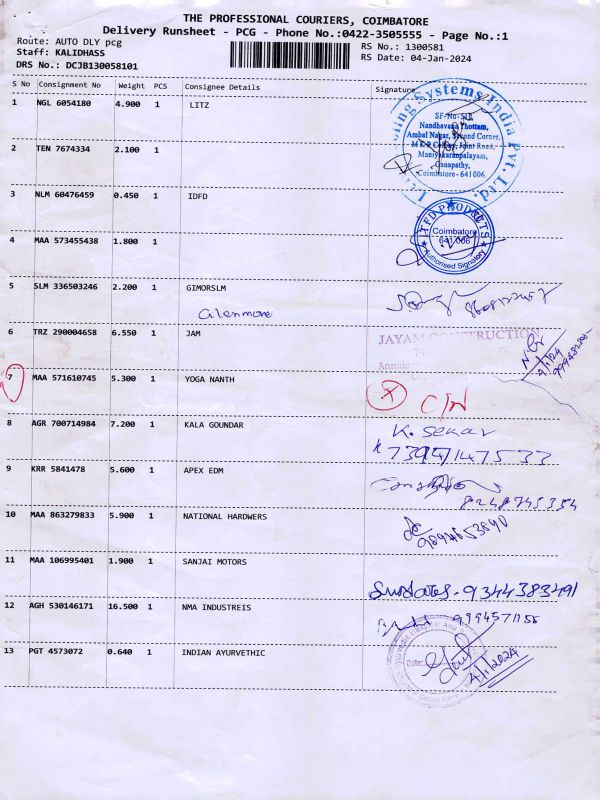 THE PROFESSIONAL COURIERS, COIMBATORE
Delivery Runsheet - PCG - Phone No.:0422-3505555 - Page No.:1
Route: AUTO DLY pcg
Staff: KALIDHASS
DRS No.: DCJB130058101
RS No.: 1300581
RS Date: 04-Jan-2024
S No Consignment No Weight PCS Consignee Details Signature
1 NGL 6054180 4.900 1 LITZ
Systems India Pvt. Ltd.
Nandhavana Thottam,
Ambal Nagar, Second Corner,
Maniyakarampalayam,
Ganapathy,
Coimbatore - 641 006.
2 TEN 7674334 2.100 1
3 NLM 60476459 0.450 1 IDFD
PRODUCTS
Coimbatore
641 006
Authorised Signatory
4 MAA 573455438 1.800 1
5 SLM 336503246 2.200 1 GIMORSLM
Glenmore
6 TRZ 290004658 6.550 1 JAM
JAYAM CONSTRUCTION
4/1/24
7 MAA 571610745 5.300 1 YOGA NANTH
8 AGR 700714984 7.200 1 KALA GOUNDAR
K. Sekar
9 KRR 5841478 5.600 1 APEX EDM
8248745354
10 MAA 863279833 5.900 1 NATIONAL HARDWERS
11 MAA 106995401 1.900 1 SANJAI MOTORS
9344383491
12 AGH 530146171 16.500 1 NMA INDUSTREIS
13 PGT 4573072 0.640 1 INDIAN AYURVETHIC
4/1/2024